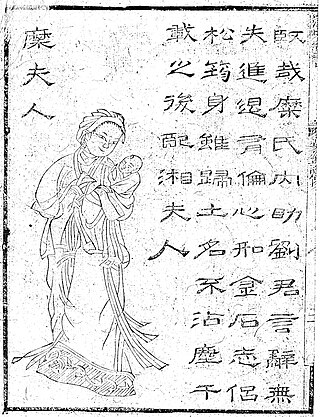 臤哉糜氏内助劉君言辭無
失進退有倫心和金石志侶
松筠身雖歸土名不沾塵千
載之後配湘夫人
糜夫人